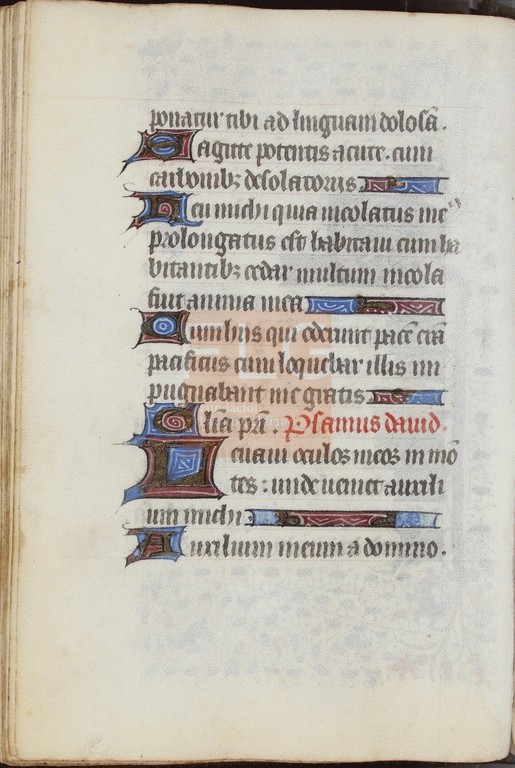 ponatur tibi ad linguam dolosā.
Sagitte potentis acute. cum
carbonibꝫ desolatoriis
Heu michi quia incolatus meꝰ
prolongatus est habitaui cum ha
bitantibꝫ cedar multum incola
fuit anima mea
Cum hiis qui oderunt pacē erā
pacificus cum loquebar illis im
pugnabant me gratis
Glīa pr̄i. Psalmus dauid.
Leuaui oculos meos in mō
tes: unde ueniet auxili
um michi
Auxilium meum a domino.